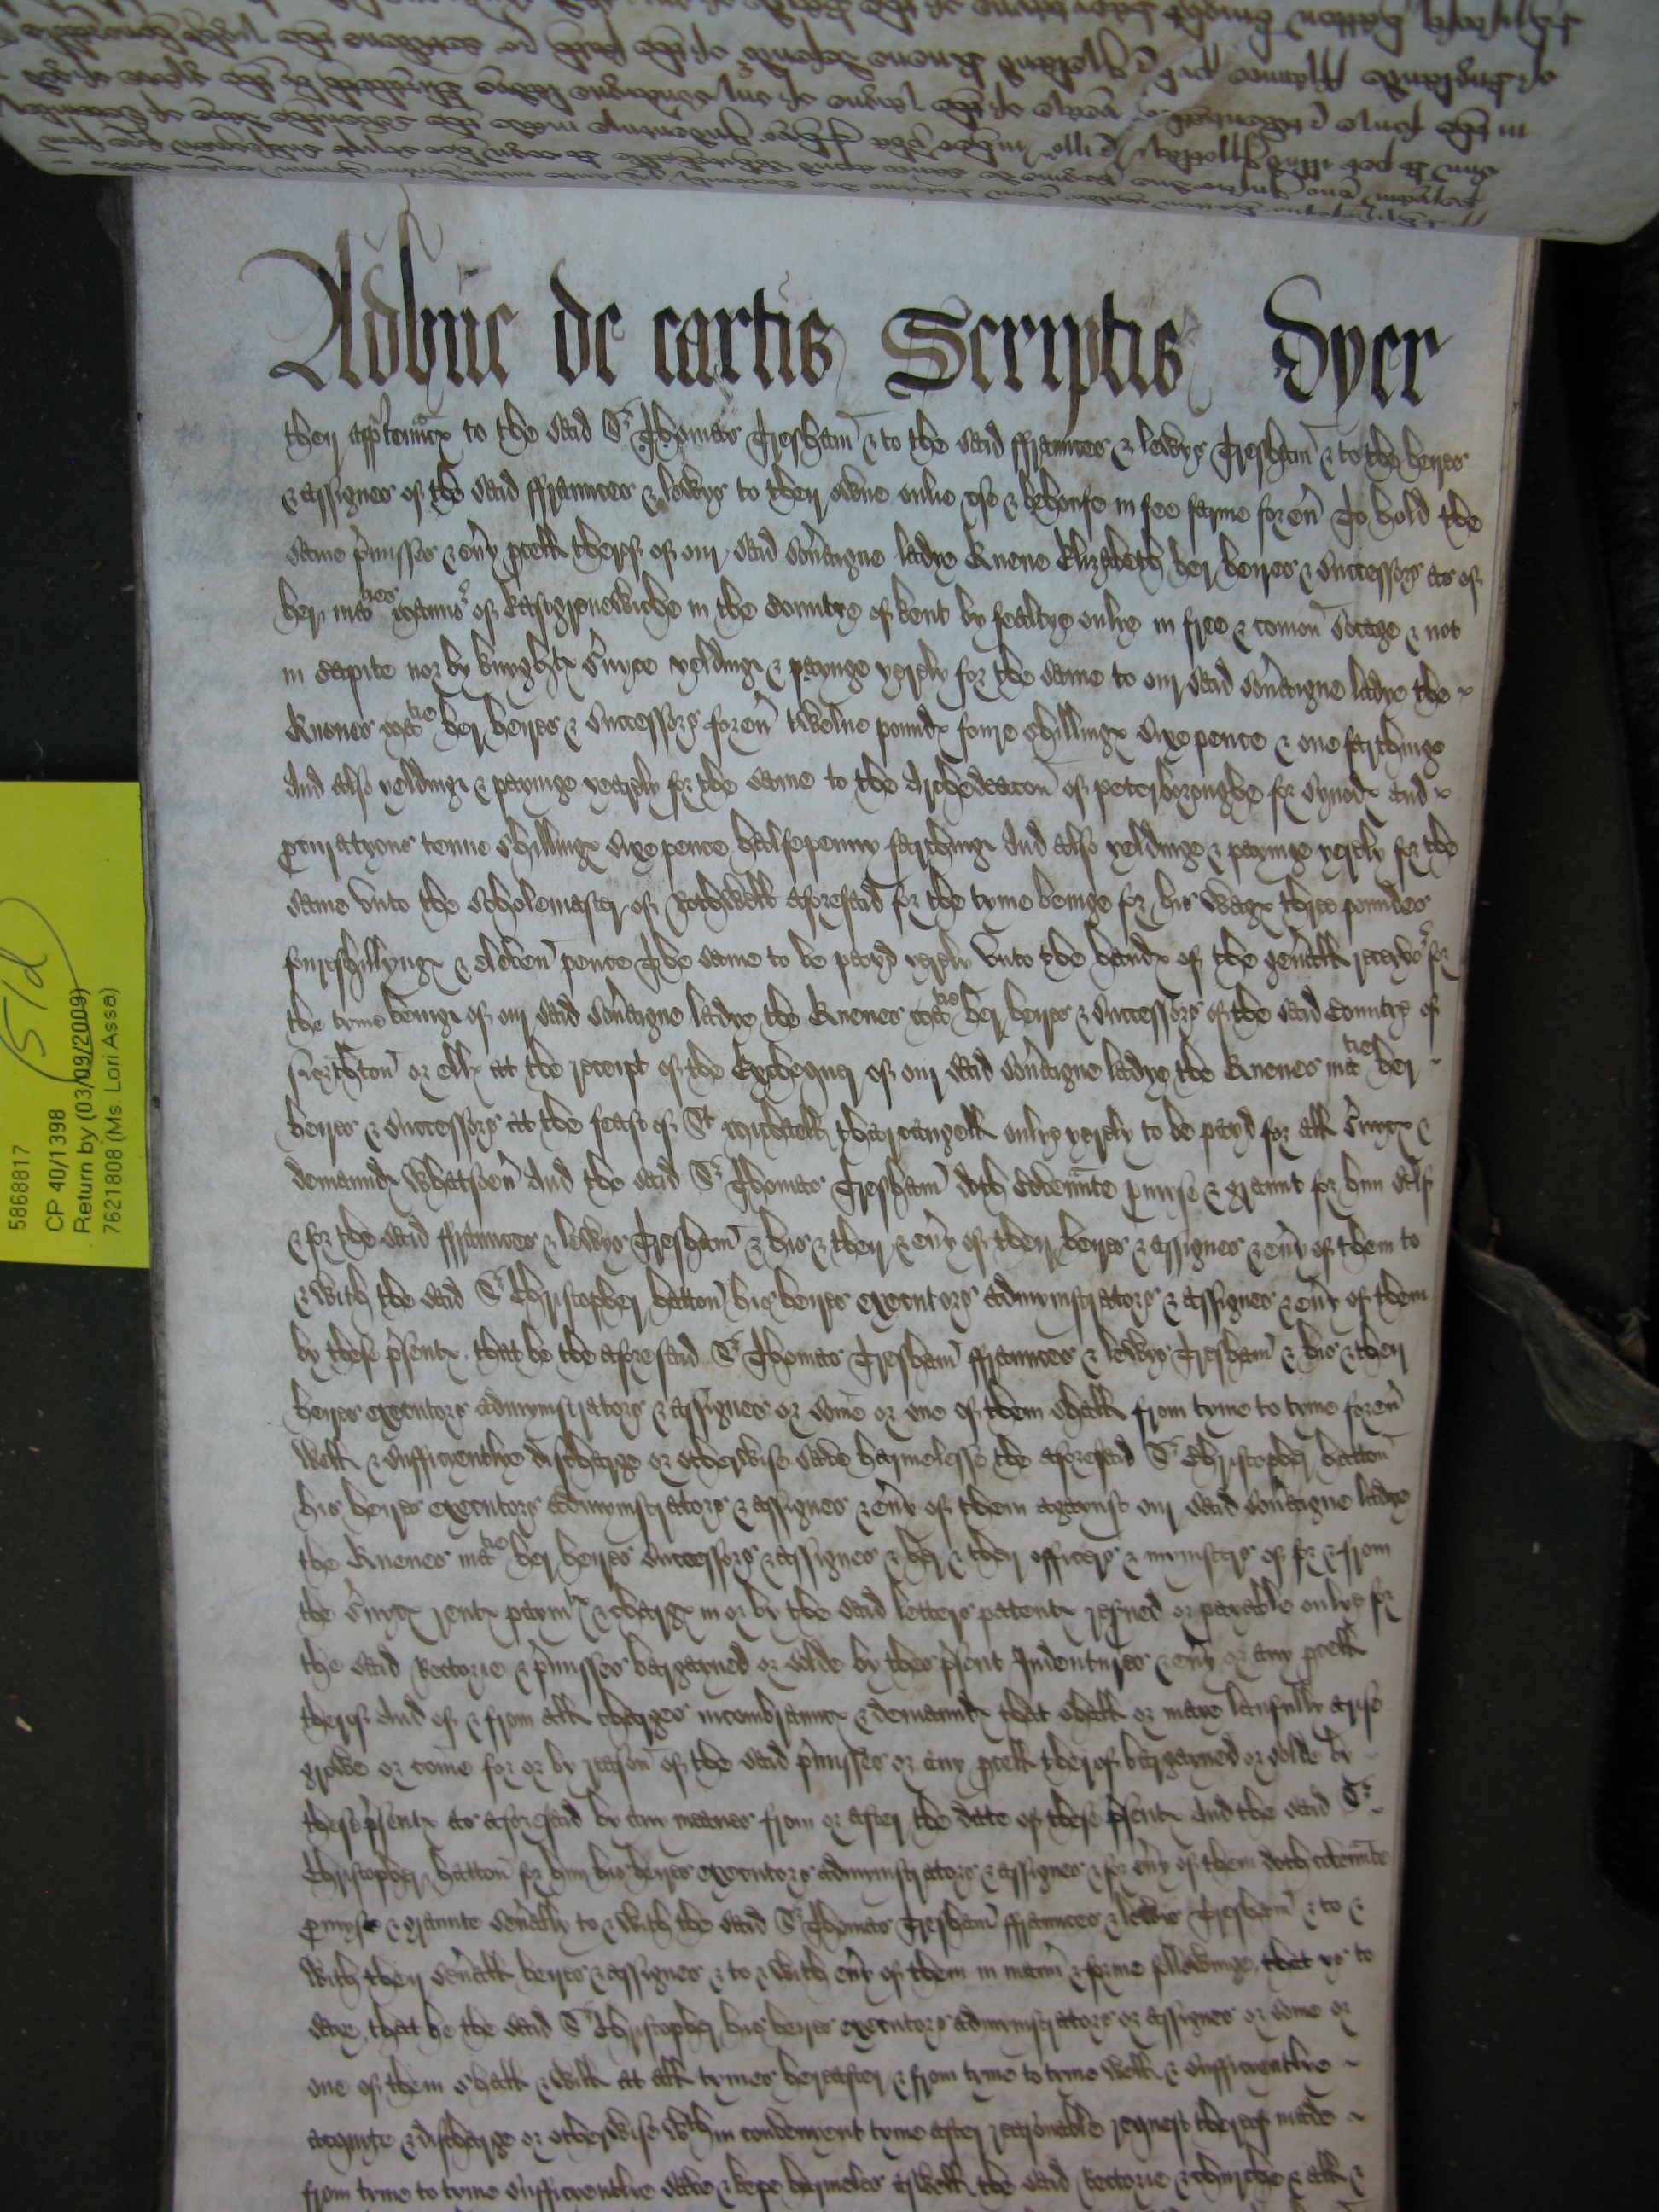 Adhuc de cartis Scriptis Dyer
they apptennce to the said Sr Thomas Tresham & to the said ffraunces & lewys Tresham & to the heyres
& assignes of the said ffraunces & lewys to they owne onlie use & behoufe in fee farme for eu' To hold the
same p'misses & eu'y pcell therof of our said Sou'aigne ladye Quene Elizabeth her heyres & Successors as of
her ma'ties mano'r of Eastgrenewiche in the Countye of kent by fealtye onlye in free & comon Socage & not
in Capite nor by knyghts s'uyce yeldinge & payinge yerely for the same to our said Sou'aigne ladye the
Quenes ma'tie her heyres & Successors for eu' twelue pounds foure shillings sixe pence & one farthinge
And also yeldinge & payinge yearely for the same to the Archedeacon of peterboroughe for Synods and
pcuratyons tenne shillings sixe pence halfepenny farthinge And also yeldinge & payinge yerely for the
same vnto the Scholemaster of Rothwell aforesaid for the tyme beinge for his wags three poundes
foureshillyngs & eleuen pence The same to be payd yerely vnto the hands of the gen'all receyvo'r for
the tyme beinge of our said Sou'aigne ladye the Quenes ma'tie her heyres & Successors of the said Countye of
Northton or ells at the receipt of the Exchequer of our said Sou'aigne ladye the Quenes ma'ties her
heyres & Successors at the feast of St Michaell tharcangell onlye yerely to be payd for all s'uyces &
demaunds whatsoeu' And the said Sr Thomas Tresham doth Couenante pmyse & graunt for hym self
& for the said ffraunces & lewys Tresham & his & their & eu'y of their heyres & assignes & eu'y of them to
& with the said Sr Christopher hatton his heyres executors admynistrators & assignes & eu'y of them
by these p'sents, that he the aforesaid Sr Thomas Tresham ffraunces & lewys Tresham & his & their
heyres executors admynistrators & assignes or some or one of them shall from tyme to tyme for eu'
well & sufficyentlye discharge or otherwise save harmelesse the aforesaid Sr Christopher hatton
his heyres executors admynistrators & assignes & eu'y of them agaynst our said Sou'aigne ladye
the Quenes ma'tie her heyres Successors & assignes & her & their officers & mynisters of for & from
the s'uycs rents paymts & chargs in or by the said letters patents res'ued or payable onlye for
the said Rectorie & p'misses bargayned or solde by thes p'sent Indentures & eu'y or any pcell
therof And of & from all charges incombraunces & demaunds that shall or maye laufully arise
growe or come for or by reason of the said p'misses or any pcell therof bargayned or solde by
these p'sents as aforesaid by any meanes from or after the date of these p'sents And the said Sr
Christopher hatton for him his heyres executors admynistrators & assignes & for eu'y of them doth couenante
pmyse & graunte seu'ally to & with the said Sr Thomas Tresham ffraunces & lewis Tresham & to &
with their seu'all heyres & assignes & to & with eu'y of them in mann' & forme followinge, that ys to
saye, that he the said Sr Christopher his heyres executors admynistrators or assignes or some or
one of them shall & will at all tymes hereafter & from tyme to tyme well & sufficyentlye
acquyte & discharge or otherwise wthin convenyent tyme after reasonable request therof made
from tyme to tyme sufficyentlye save & kepe harmeles aswell the said Rectorie & churche & all &
5/d
5868817
CP 40/1398
Return by (03/09/2009)
7621808 (Ms. Lori Assa)